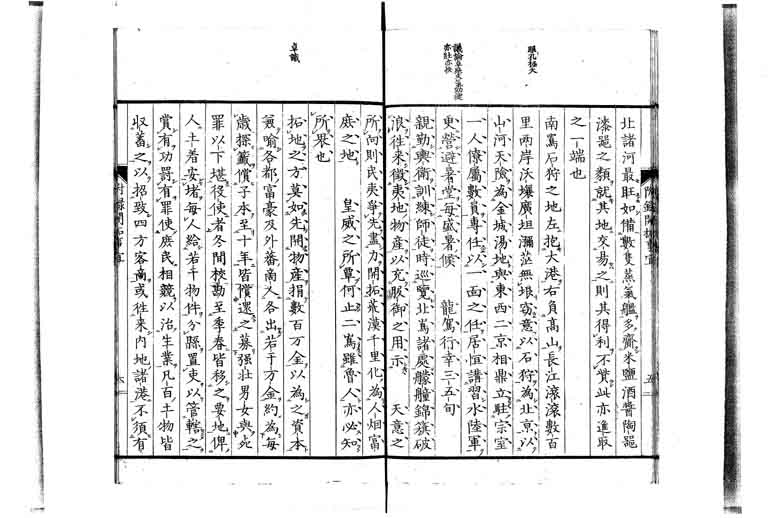 北諸河最旺如備數隻蒸氣艦多齎米鹽酒醬陶器
漆器之類就其地交易之則其得利不贅此亦進取
之一端也
南蔦石狩之地左抱大港右負高山長江滾滾數百
里兩岸沃壤廣坦瀰茫無垠竊意以石狩為北京以
山河天險為金城湯地與東西二京相鼎立駐宗室
一人僚屬數員專任以一面之任居恒講習水陸軍
東營避暑堂每盛暑候 龍駕行幸三五旬
親勤輿衛訓練師徒時巡覽北蔦諸處艨艟錦旗破
浪往来徵夷地物産以充服御之用示 天意之
所向則民夷爭先盡力開拓荒漠千里化為人烟富
庶之地 皇威之所覃何止二蔦雖魯人亦必知
所畏也
拓地之方莫如先開物産捐數百万金以為之資本
氣喻各都富豪及外蕃商人各出若干万金約為每
歲探籤償子本至十年皆償還之募强壮男女與死
罪以下堪役使者冬間檢勘至季春皆移之要地俾
人土着安堵每人給若干物件分縣置吏以管轄之
賞有功罰有罪使庶民相競以治生業凡百土物皆
収蓄之以招致四方客商或往来内地諸港不須有
卓識
眼孔極大